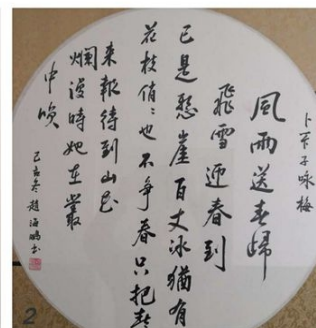 卜算子咏梅
風雨送春歸
飛雪迎春到
已是懸崖百丈冰猶有
花枝俏〻也不争春只把春
来報待到山花
爛漫時她在叢
中唤
己亥冬趙海鵬书
2